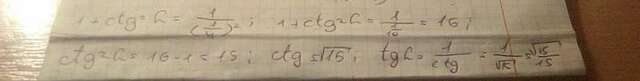 1+ctg²h = 1/(1/4)²; 1+ctg²h = 1/(1/16) = 16;
ctg²h = 16-1 = 15; ctg = √15; tgh = 1/ctg = 1/√15 = √15/15